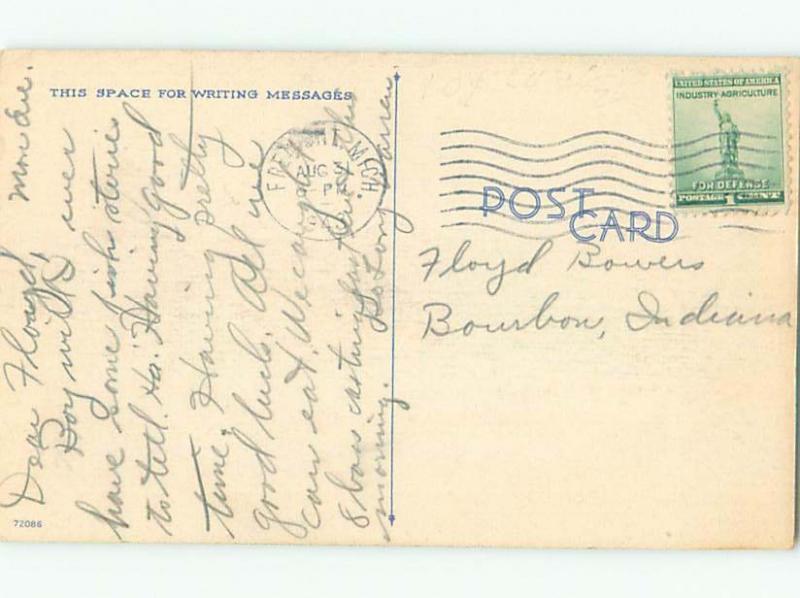 THIS SPACE FOR WRITING MESSAGES
Mon Eve.
Dear Floyd,
Boy will I ever
have some fish stories
to tell. Ha. Having good
time. Having pretty
good luck. All we
can eat. We caught
8 bass casting this
morning.
So Long Warren
72086
FREMONT, MICH.
AUG
PM
UNITED STATES OF AMERICA
INDUSTRY AGRICULTURE
FOR DEFENSE
POSTAGE 1 CENT
POST CARD
Floyd Bowers
Bourbon, Indiana